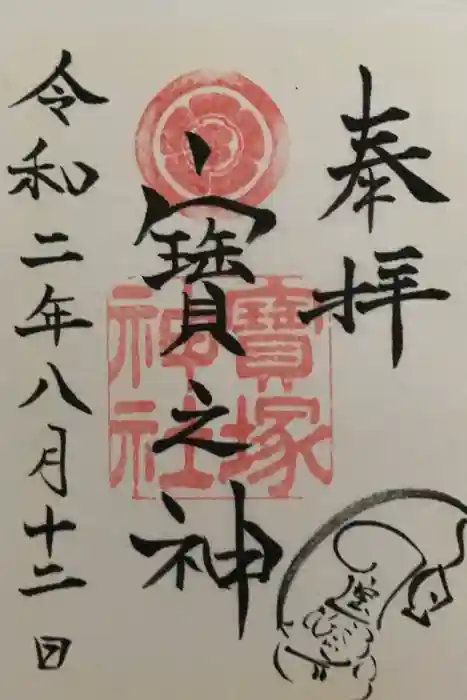 奉拝
寳之神
寶塚
神社
令和二年八月十二日